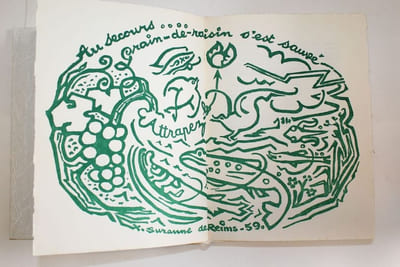 Au secours...
Grain-de-raisin s'est sauvé
Attrapez
X. Suzanne de Reims - 59.